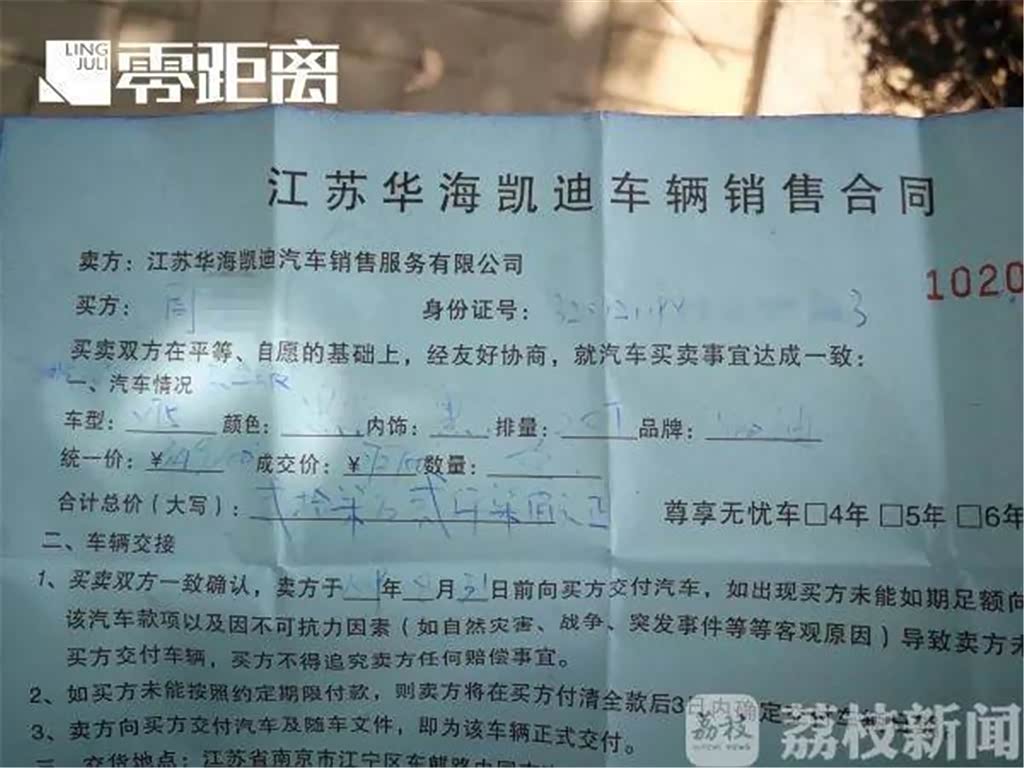 LING JULI 零距离
江苏华海凯迪车辆销售合同
卖方：江苏华海凯迪汽车销售服务有限公司
1020
买方：周 身份证号： 3
买卖双方在平等、自愿的基础上，经友好协商，就汽车买卖事宜达成一致：
一、汽车情况
车型： 颜色： 内饰： 排量： 品牌：
统一价：¥ 成交价：¥ 数量：
合计总价（大写）：
尊享无忧车□4年 □5年 □6年
二、车辆交接
1、买卖双方一致确认，卖方于 年 月31日前向买方交付汽车，如出现买方未能如期足额向
该汽车款项以及因不可抗力因素（如自然灾害、战争、突发事件等等客观原因）导致卖方未
买方交付车辆，买方不得追究卖方任何赔偿事宜。
2、如买方未能按照约定期限付款，则卖方将在买方付清全款后3日内确定交付车辆
3、卖方向买方交付汽车及随车文件，即为该车辆正式交付。
交货地点：江苏省南京市江宁区车麒路
荔枝
LITCHI NEWS
荔枝新闻